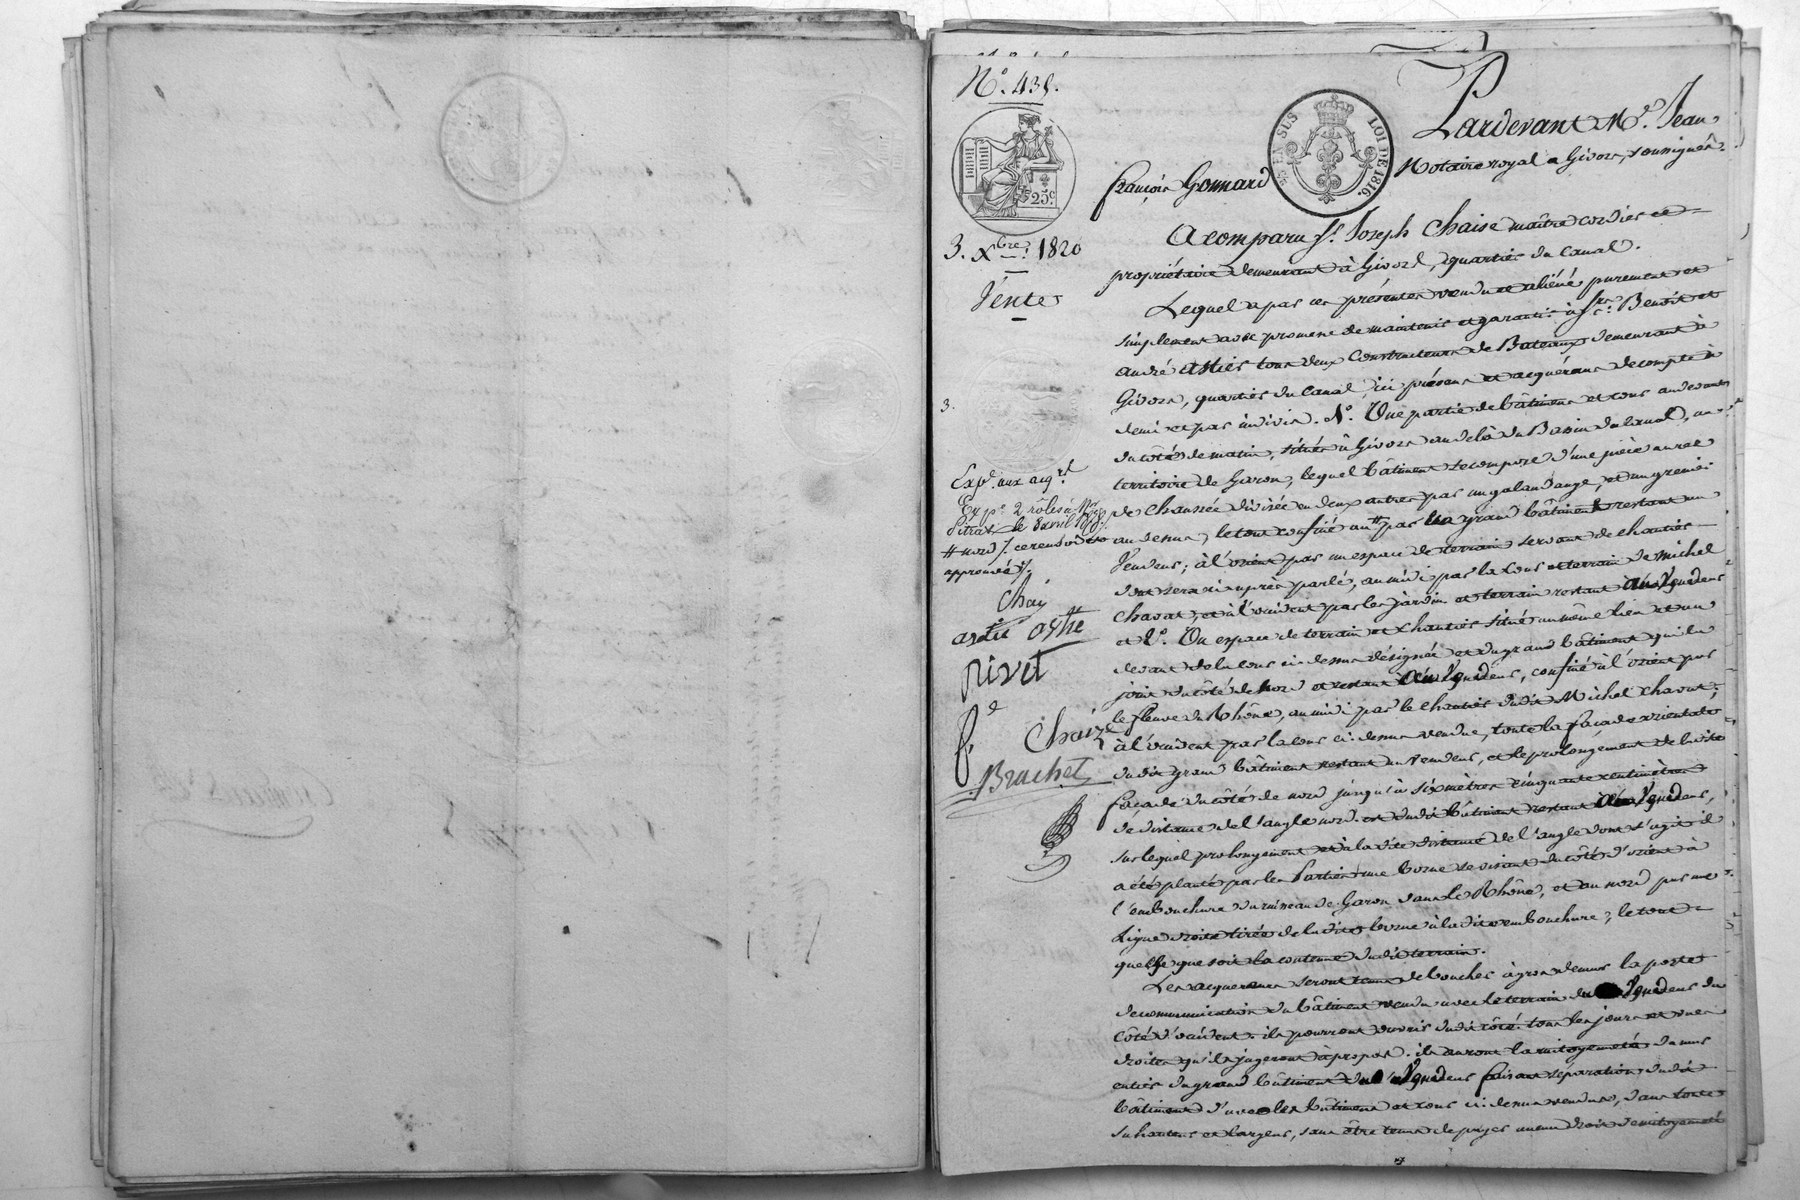 N.° 435.
25c.
EN SUS LOI DE 1816.
3. Xbre. 1820
Vente
3.
Expn. aux acqrs
Expn. 2 rôles à Mr
Pitrat le 8 avril
# nord /. ce renvoi
approuvé /.
Chaiz
astié astié
Rivet
Chaize
Brachet
Pardevant Me. Jean
françois Gonnard Notaire royal à Givors, soussigné
A comparu sr. Joseph Chaise maître cordier et
propriétaire demeurant à Givors, quartier du Canal.
Lequel a par ces présentes vendu et aliéné purement et
simplement avec promesse de maintenir et garantir à srs. Benoit et
andré astier tous deux constructeurs de Bateaux demeurant à
Givors, quartier du Canal, ici présens et acquérans de compte à
demi et par indivis. 1°. Une partie de bâtimens et cour au devant
du côté de matin, situés à Givors au delà du Bassin du canal, au
territoire de Garon, lequel bâtiment se compose d'une pièce au rez
de chaussée divisée en deux autres par un galandage, et un grenier
au dessus, le tout confiné au # par le grand bâtiment restant au
Vendeur; à l'orient par un espace de terrain servant de chantier
dont sera ci après parlé, au midi par la cour et terrain de michel
chavat, et à l'occident par les jardin et terrain restant au Vendeur
et 2°. Un espace de terrain et chantier situé au même lieu et au
devant de la cour ci-dessus désignée et du grand bâtiment qui la
joint du côté de nord et restant au Vendeur, confiné à l'orient par
le fleuve du Rhône, au midi par le chantier dudit Michel Chavat;
à l'occident par la cour ci-dessus vendue, toute la façade orientale
dudit grand bâtiment restant au Vendeur, et le prolongement de ladite
façade du côté de nord jusqu'à six mètres cinquante centimètres
de distance de l'angle nord-est dudit bâtiment restant au Vendeur,
sur lequel prolongement et à la dite distance de l'angle dont s'agit il
a été planté par les Parties une borne se visant du côté d'orient à
l'embouchure du ruisseau de Garon dans le Rhône, et au nord par une
ligne droite tirée de ladite borne à la dite embouchure; le tout
quelle que soit la contenue dudit terrain.
Les acquereurs seront tenus de boucher à gros de murs la porte
de communication du bâtiment vendu avec le terrain du Vendeur du
côté d'occident. ils pourront ouvrir dudit côté tous les jours et vues
droites qu'ils jugeront à propos. ils auront la mitoyenneté du mur
entier du grand bâtiment du Vendeur faisant séparation dudit
bâtiment d'avec les bâtimens et cour ci-dessus vendus, dans toute
sa hauteur et largeur, sans être tenus de payer aucun droit de mitoyenneté